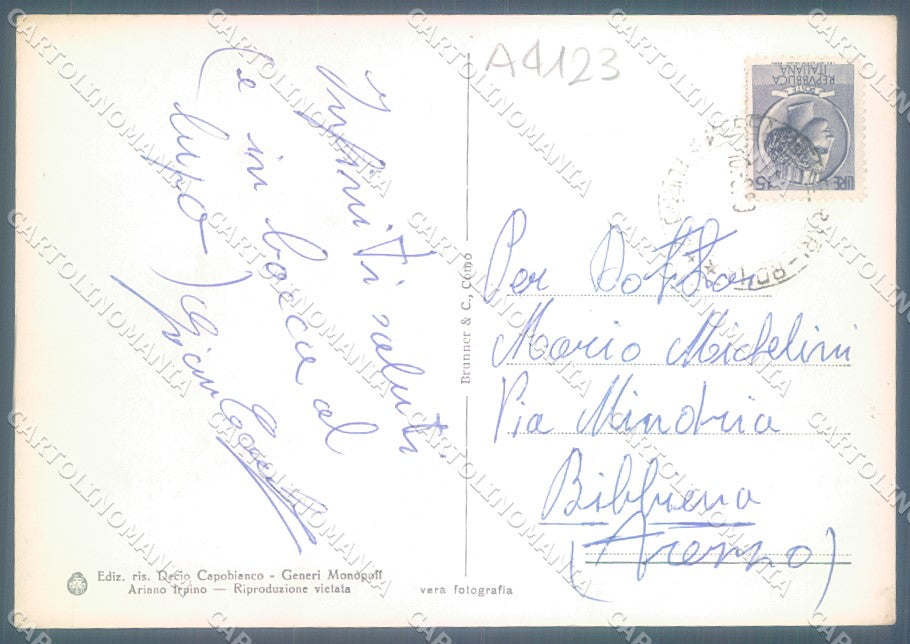 A4123
REPVBBLICA
ITALIANA
POSTE
LIRE 15
Infiniti saluti
(e in bocca al
lupo)
Per Dottor
Mario Michelini
Via Mindria
Bibbiena
(Arezzo)
Brunner & C., Como
Ediz. ris. Decio Capobianco - Generi Monopoli
Ariano Irpino — Riproduzione vietata
vera fotografia
CARTOLINOMANIA